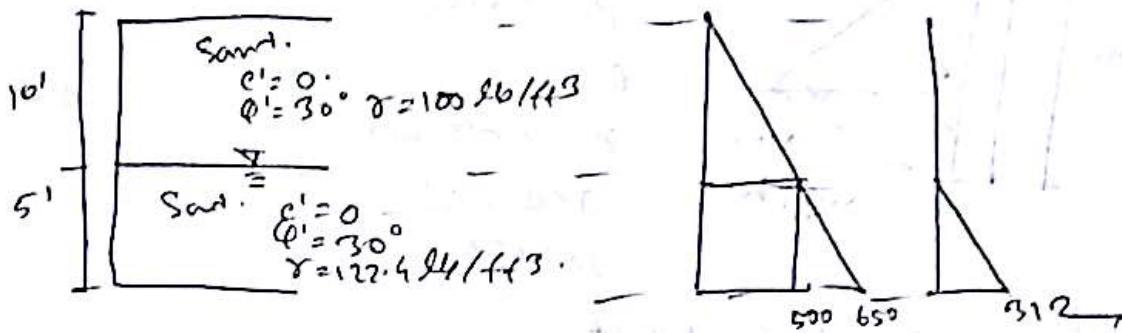 10'
Sand.
c' = 0.
φ' = 30° γ = 100 lb/ft3
5'
Sand.
c' = 0
φ' = 30°
γ = 122.4 lb/ft3.
500 650
312